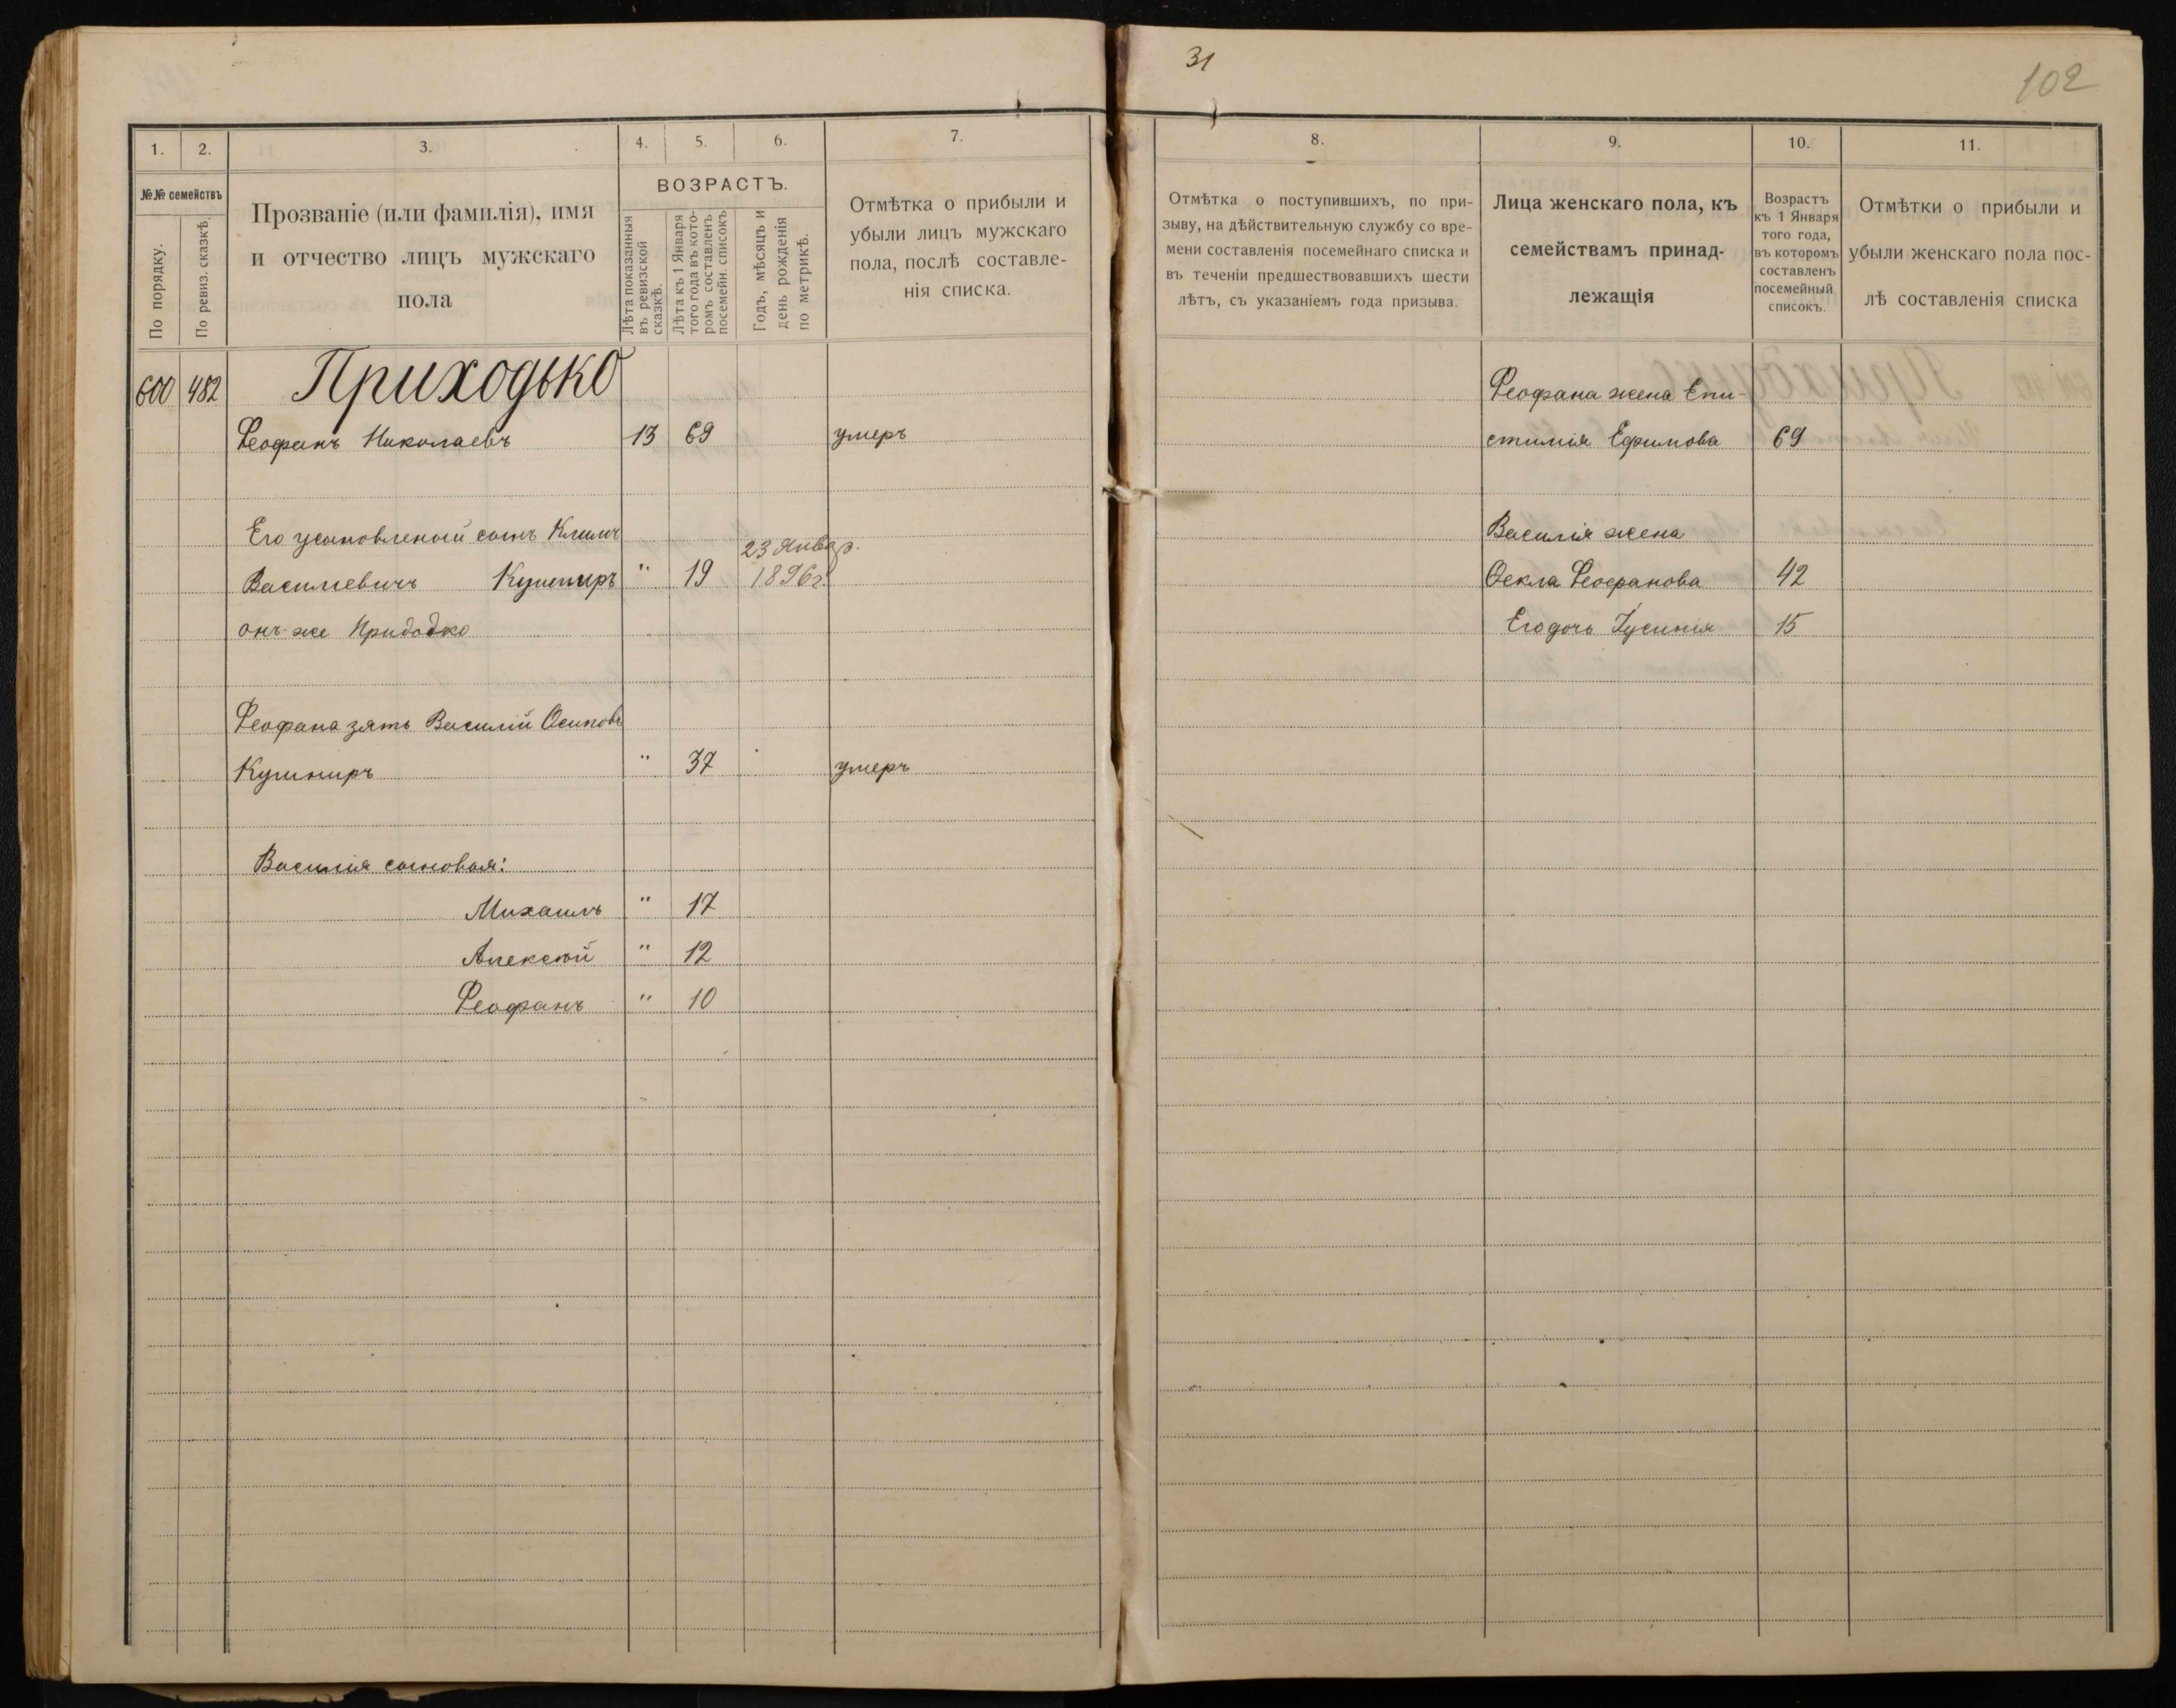 31
102
1.
2.
3.
4.
5.
6.
7.
№№ семействъ
По порядку.
По ревиз. сказкѣ.
Прозваніе (или фамилія), имя
и отчество лицъ мужскаго
пола
ВОЗРАСТЪ.
Лѣта показанныя
въ ревизской
сказкѣ.
Лѣта къ 1 Января
того года въ кото-
ромъ составленъ
посемейн. списокъ
Годъ, мѣсяцъ и
день рожденія
по метрикѣ.
Отмѣтка о прибыли и
убыли лицъ мужскаго
пола, послѣ составле-
нія списка.
600 482 Приходько
Феофанъ Николаевъ 13 69 умеръ
Его усыновленый сынъ Климъ 23 Январ.
Василіевичъ Кушниръ " 19 1896 г.
онъ-же
Феофана зять Василій Осиповъ
Кушниръ " 37 умеръ
Василія сыновья:
Михаилъ " 17
Алексѣй " 12
Феофанъ " 10
8.
9.
10.
11.
Отмѣтка о поступившихъ, по при-
зыву, на дѣйствительную службу со вре-
мени составленія посемейнаго списка и
въ теченіи предшествовавшихъ шести
лѣтъ, съ указаніемъ года призыва.
Лица женскаго пола, къ
семействамъ принад-
лежащія
Возрастъ
къ 1 Января
того года,
въ которомъ
составленъ
посемейный
списокъ.
Отмѣтки о прибыли и
убыли женскаго пола пос-
лѣ составленія списка
Феофана жена Епи-
стимія Ефимова 69
Василія жена
Ѳекла Феофанова 42
Его дочь 15